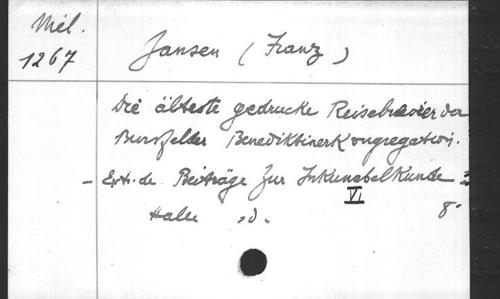 Mél.
1267
Jansen (Franz)
Die älteste gedruckte Reisebrevier der
Bursfelder Benediktinerkongregation.
- Extr. de Beiträge zur Inkunabelkunde
VI
Halle s.d. 8°